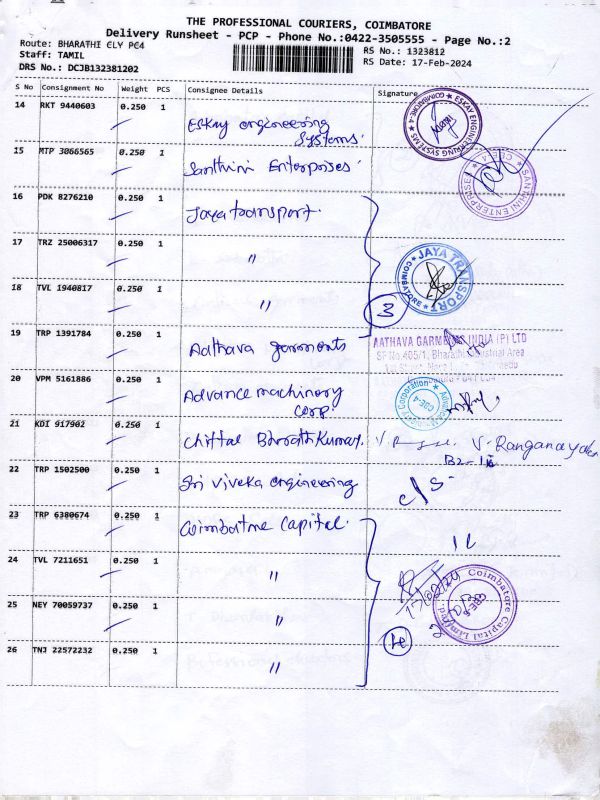 THE PROFESSIONAL COURIERS, COIMBATORE
Delivery Runsheet - PCP - Phone No.:0422-3505555 - Page No.:2
Route: BHARATHI CLY PC4
RS No.: 1323812
Staff: TAMIL
RS Date: 17-Feb-2024
DRS No.: DCJB132381202
S No Consignment No Weight PCS Consignee Details Signature
14 RKT 9440603 0.250 1 Eskay engineering
Systems
ESKAY ENGINEERING SYSTEMS COIMBATORE-4
15 MTP 3066565 0.250 1 Santhini Enterprises
SANTHINI ENTERPRISES
16 PDK 8276210 0.250 1 Jaya transport
17 TRZ 25006317 0.250 1 "
JAYA TRANSPORT COIMBATORE
18 TVL 1940817 0.250 1 "
3
19 TRP 1391784 0.250 1 Aathava garments
AATHAVA GARMENTS INDIA (P) LTD
SF No.405/1, Bharathi Industrial Area
20 VPM 5161886 0.250 1 Advance machinery
Corp.
Corporation
21 KDI 917902 0.250 1 Chittal Bharath Kumar. V. Ranganayaken
22 TRP 1502500 0.250 1 Sri Viveka engineering
C/S
23 TRP 6380674 0.250 1 Coimbatore Capital
24 TVL 7211651 0.250 1 "
17/02/24
Coimbatore Capital Limited
25 NEY 70059737 0.250 1 "
26 TNJ 22572232 0.250 1 "